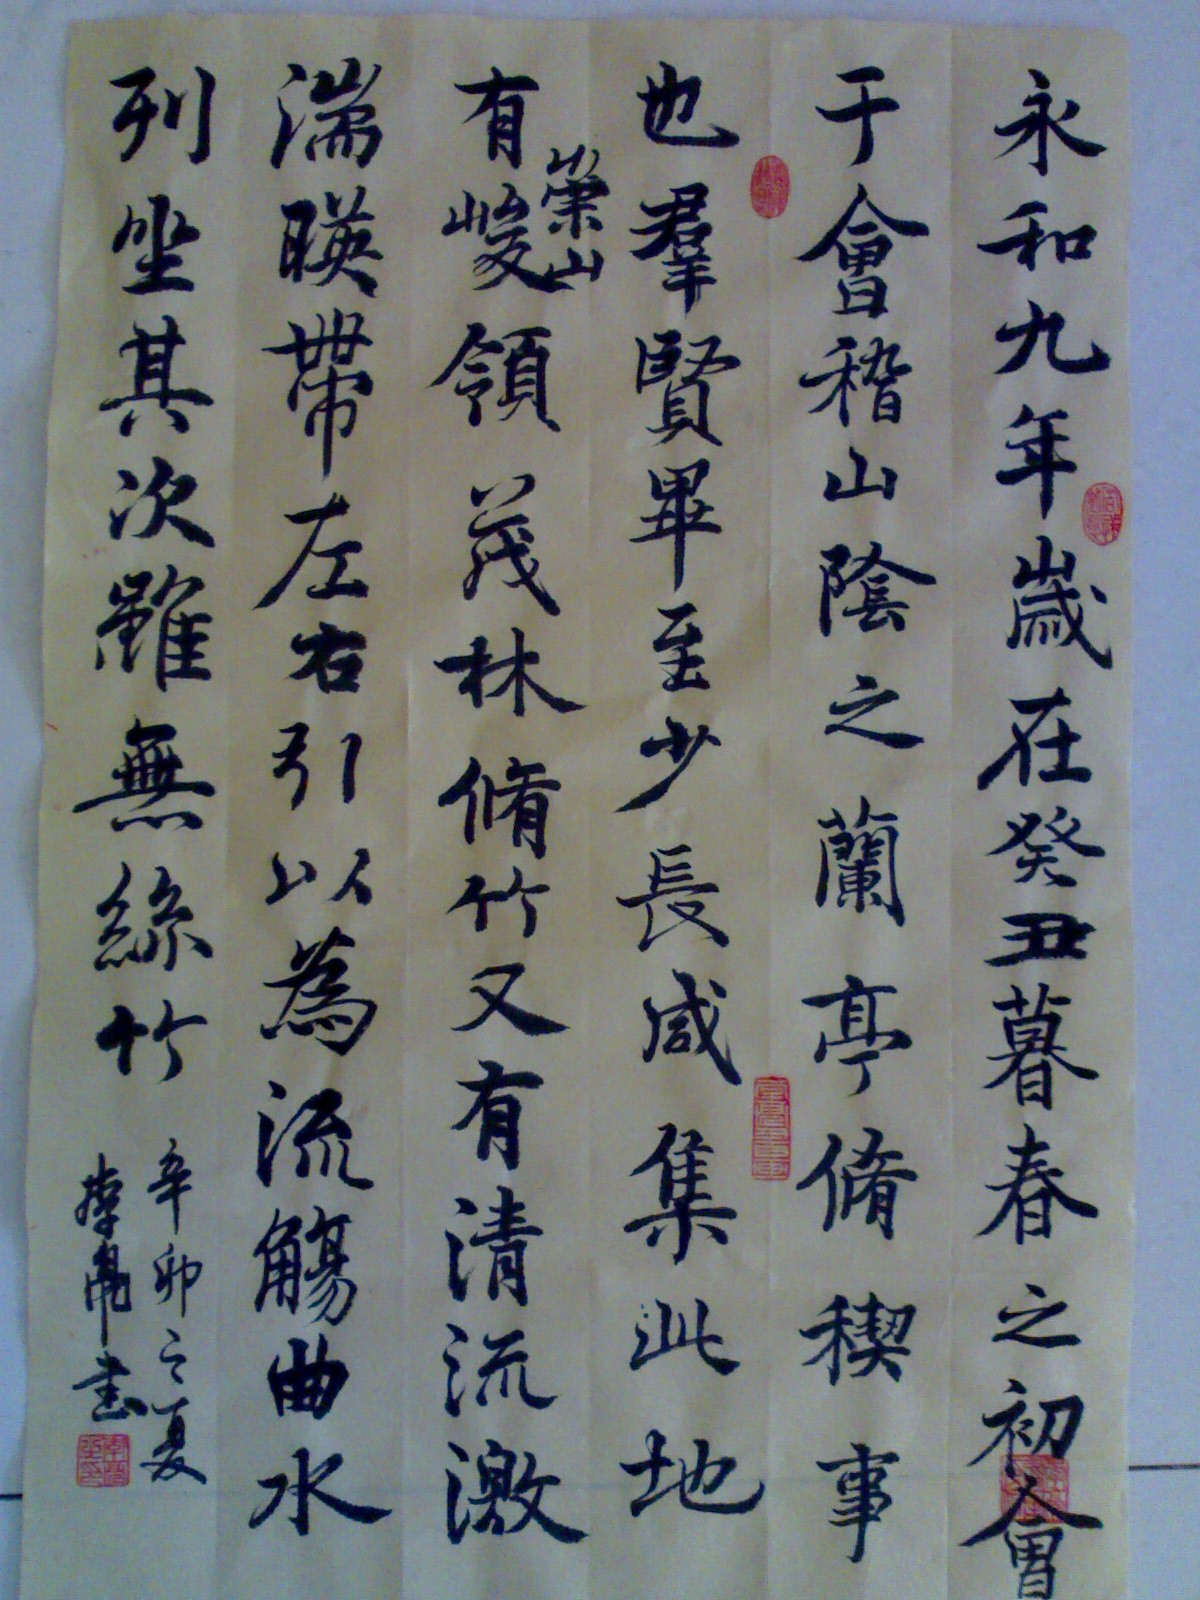 永和九年歲在癸丑暮春之初會
于會稽山陰之蘭亭脩稧事
也羣賢畢至少長咸集此地
有崇山峻領茂林脩竹又有清流激
湍暎帶左右引以為流觴曲水
列坐其次雖無絲竹
辛卯之夏
李
書